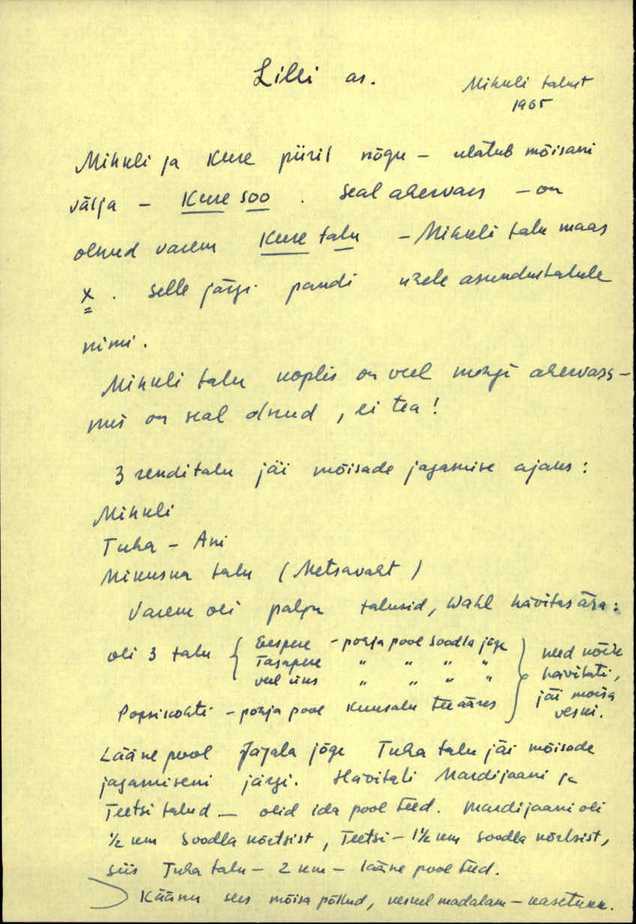 Lilli as.
Mihkli talust
1965
Mihkli ja Kure piiril nõgu – ulatub mõisani
välja – Kure soo. Seal ahervars – on
olnud varem Kure talu – Mihkli talu maas
x. Selle järgi pandi uuele asundustalule
nimi.
Mihkli talu koplis on veel mingi ahervars –
mis on seal olnud, ei tea!
3 renditalu jäi mõisade jagamise ajaks:
Mihkli
Tuha – Ani
talu (Metsavaht)
Varem oli palju talusid, Wahl hävitas ära:
oli 3 talu { Eespere – põhja pool Soodla jõge
Tagapere " " " "
veel üks " " " "
Popsikohti – põhja pool Kuusalu tee ääres
} need kõik
hävitati,
jäi mõisa
veski.
Lääne pool Jägala jõge Tuha talu jäi mõisade
jagamiseni järgi. Hävitati Mardijaani ja
Teetsi talud – olid ida pool teed. Mardijaani oli
½ km Soodla kõrtsist, Teetsi – 1½ km Soodla kõrtsist,
siis Tuha talu – 2 km – lääne pool teed.
Käänu sees mõisa põllud, veel madalam – kasetukk.